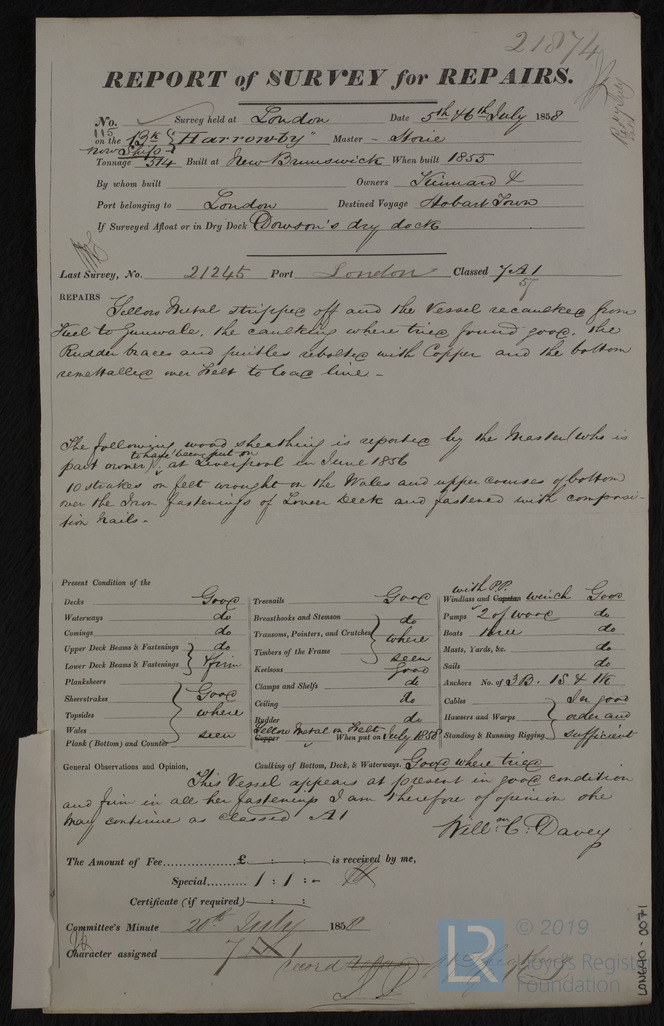 21874
REPORT of SURVEY for REPAIRS.
No. Survey held at London Date 5th & 6th July 1858
115
on the Bk "Harrowby" Master - Storie
now Ship
Tonnage 514 Built at New Brunswick When built 1855
By whom built Owners Kinnard &
Port belonging to London Destined Voyage Hobart Town
If Surveyed Afloat or in Dry Dock Dowson's dry dock
Last Survey, No. 21245 Port London Classed 7 A 1
57
REPAIRS Yellow Metal stripped off and the Vessel recaulked from
Keel to Gunwale, the caulking where tried found good. The
Rudder braces and pintles rebolted with Copper and the bottom
remetalled over Felt to load line -
The following wood sheathing is reported by the Master (who is
part owner) to have been put on at Liverpool in June 1856
10 strakes on felt wrought on the Wales and upper courses of bottom
over the Iron fastenings of Lower Deck and fastened with composi-
tion Nails -
Present Condition of the
Decks Good
Waterways do
Comings do
Upper Deck Beams & Fastenings do
Lower Deck Beams & Fastenings & firm
Planksheers
Sheerstrakes Good
Topsides where
Wales seen
Plank (Bottom) and Counter
Treenails Good
Breasthooks and Stemson do
Transoms, Pointers, and Crutches where
Timbers of the Frame seen
Keelsons good
Clamps and Shelfs do
Ceiling do
Rudder do
Yellow Metal on Felt
Copper When put on July 1858
with P.P.
Windlass and Capstan winch Good
Pumps 2 of wood do
Boats three do
Masts, Yards, &c. do
Sails do
Anchors No. of 3 B. 1 S & 1 K
Cables In good
Hawsers and Warps order and
Standing & Running Rigging sufficient
General Observations and Opinion, Caulking of Bottom, Deck, & Waterways. Good where tried
This Vessel appears at present in good condition
and firm in all her fastenings I am therefore of opinion she
may continue as classed A1
Willm. C. Davey
The Amount of Fee £ : : is received by me,
Special 1 : 1 : -
Certificate (if required) : :
Committee's Minute 20th July 1858
Character assigned 7 A 1
record
© 2019
Lloyd's Register
Foundation
LON640-0071